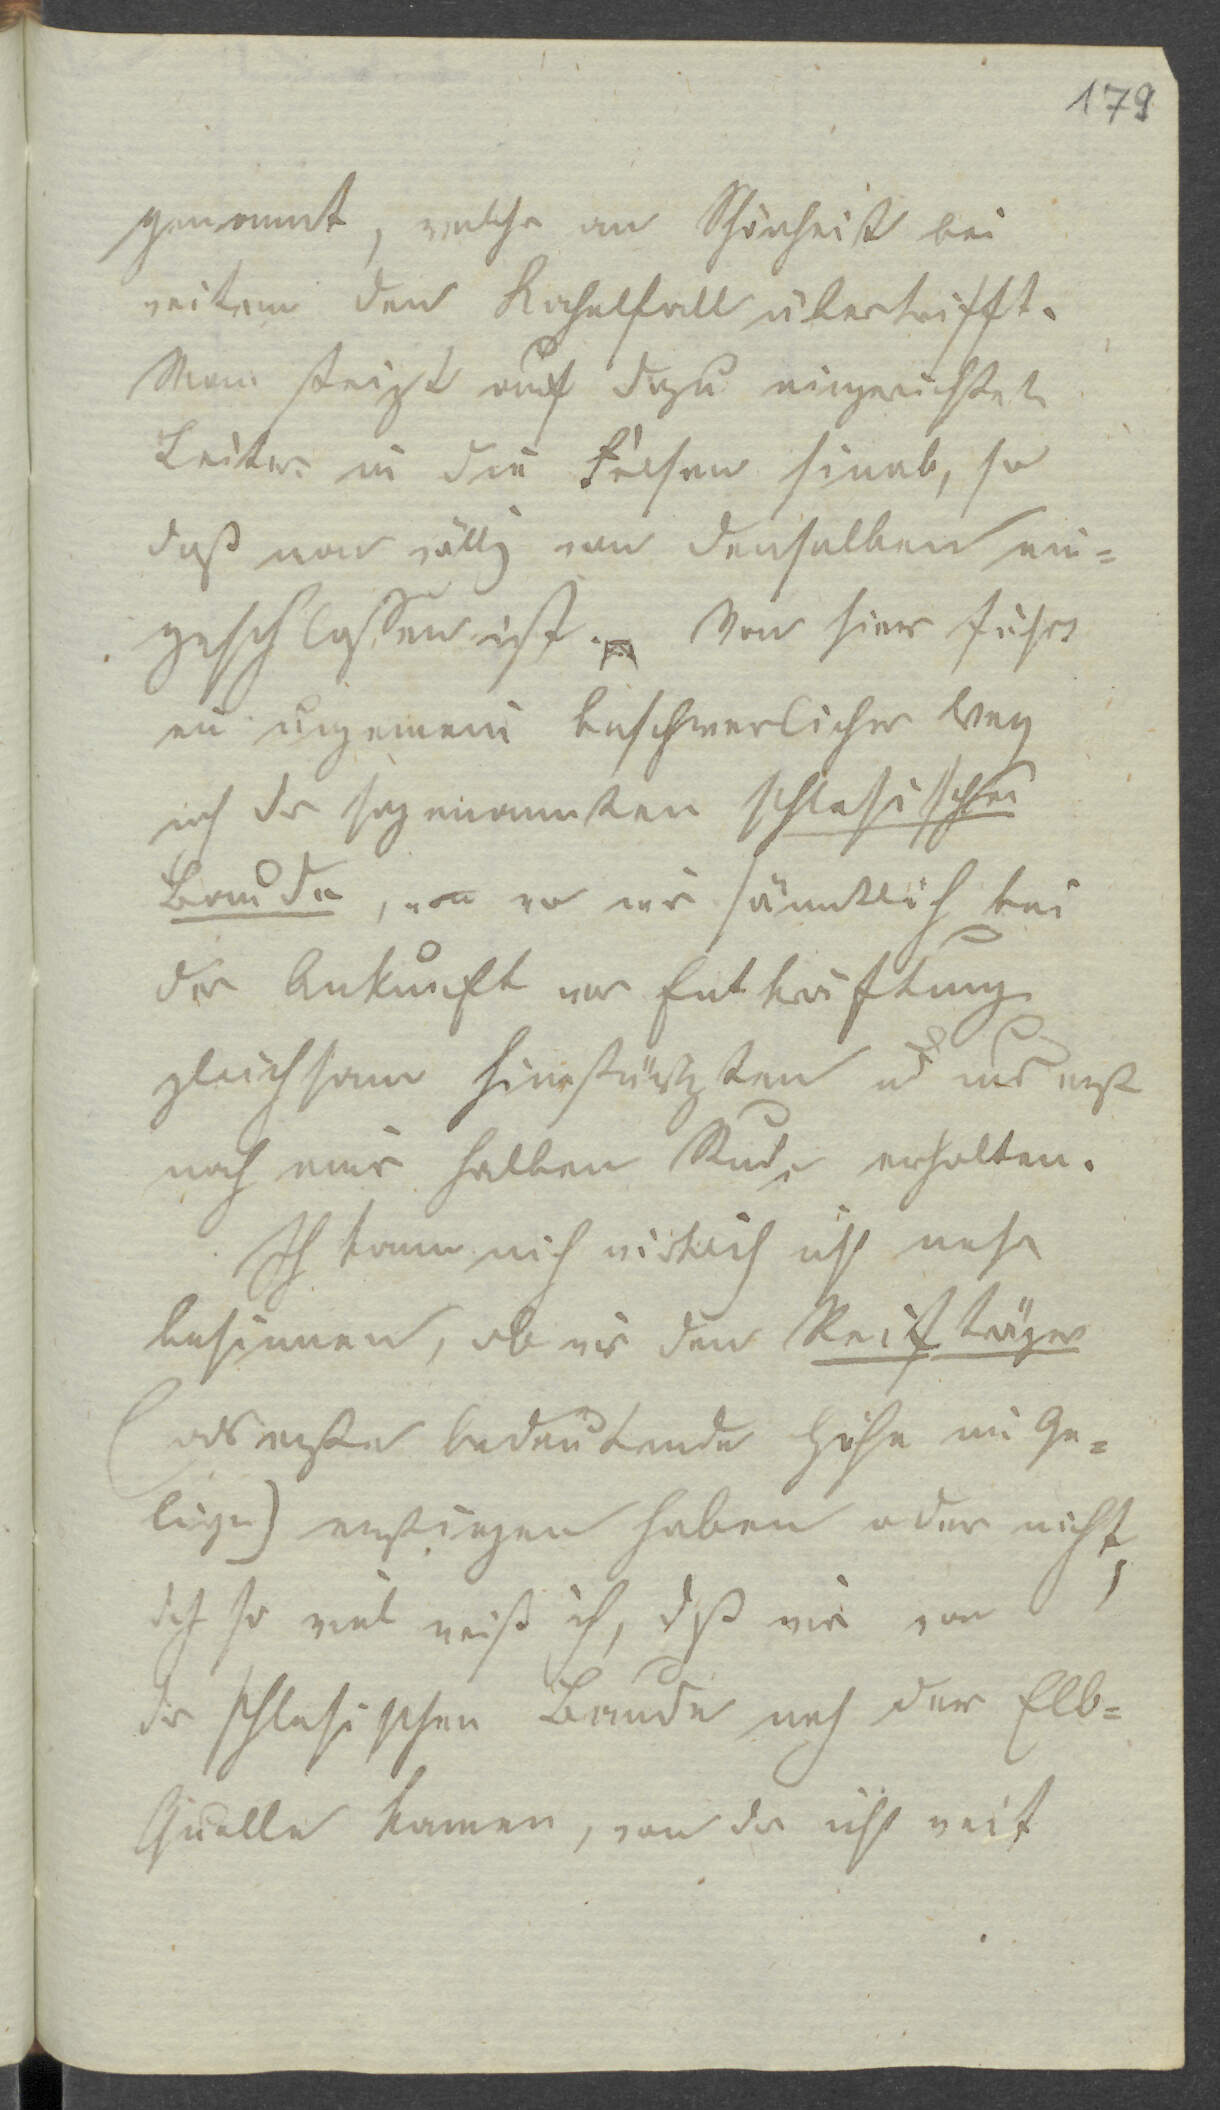 179
genannt, welche an Schönheit bei
weitem den Kochelfall übertrifft.
Man steigt auf dazu eingerichteten
Leitern in die Felsen hinab, so
daß man völlig von denselben ein-
geschlossen ist. Von hier führt
ein ungemein beschwerlicher Weg
nach der sogenannten schlesischen
Baude, wo wir sämtlich bei
der Ankunft vor Entkräftung
gleichsam hinstürzten und uns erst
nach einer halben Stunde erholten.
Ich kann mich wirklich nicht mehr
besinnen, ob wir den Reifträger
(als erste bedeutende Höhe im Ge-
birge) erstiegen haben oder nicht,
doch so viel weiß ich, daß wir von
der schlesischen Baude nach der Elb-
Quelle kamen, von da nicht weit